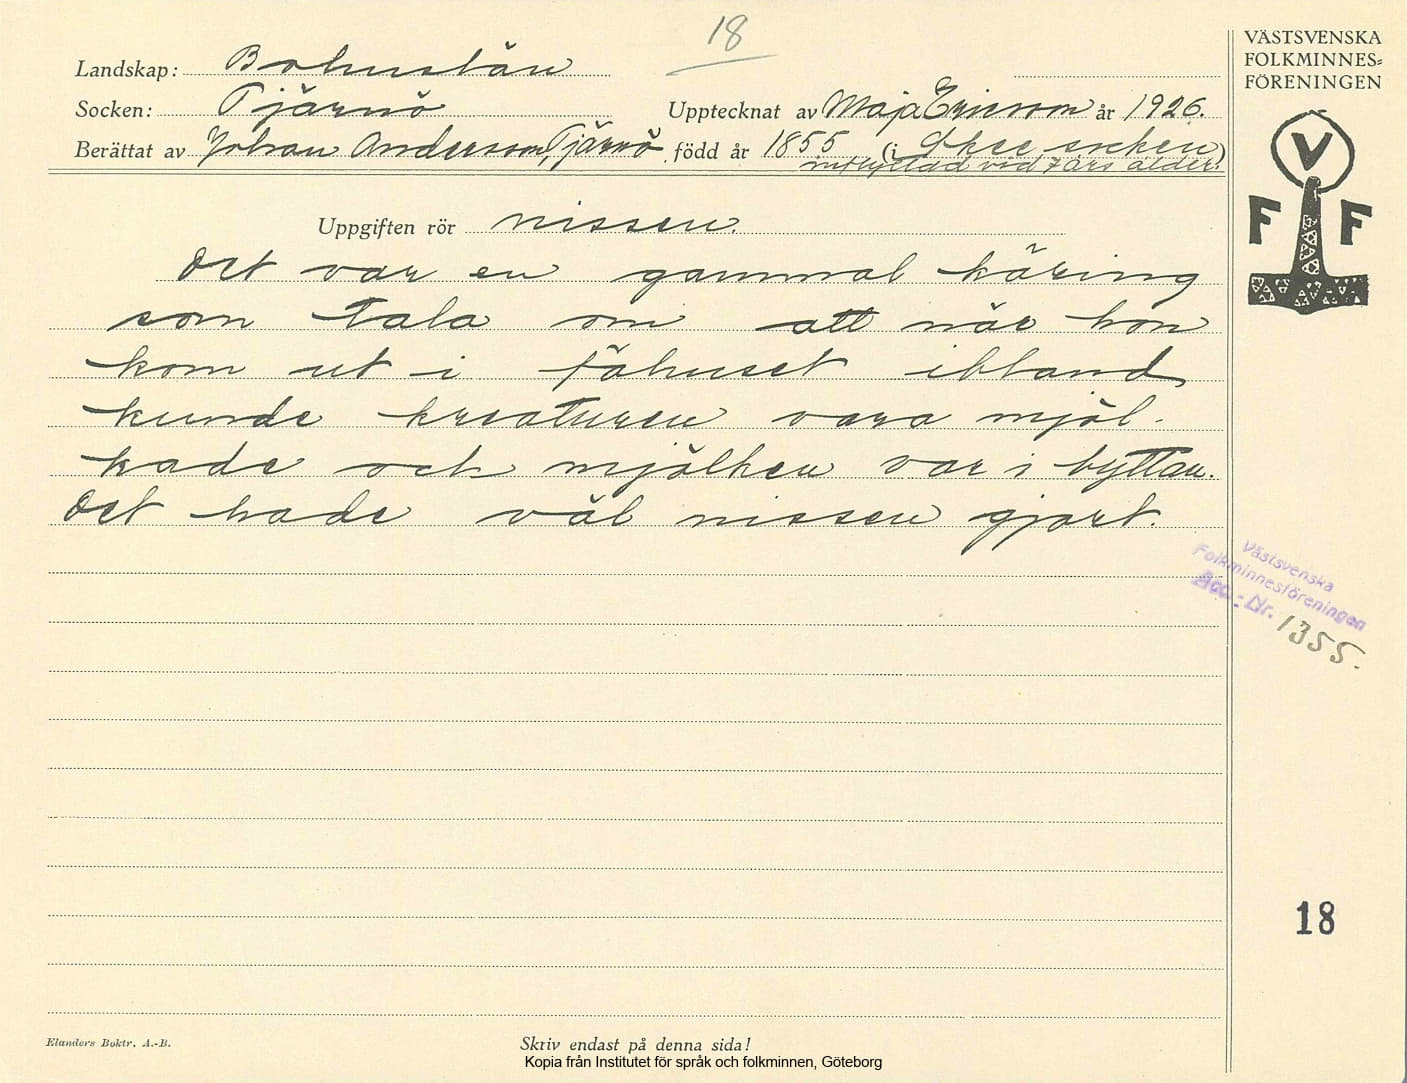 18
Landskap: Bohuslän
Socken: Tjärnö
Upptecknat av Maja Ericsson år 1926.
Berättat av Johan Andersson, Tjärnö född år 1855 (i Skee socken)
inflyttad vid 7 års ålder.
Uppgiften rör nissen.
Det var en gammal käring
som tala om att när hon
kom ut i fähuset ibland
kunde kreaturen vara mjöl-
kade och mjölken var i byttan.
Det hade väl nissen gjort.
VÄSTSVENSKA
FOLKMINNES=
FÖRENINGEN
V
F F
Västsvenska
Folkminnesföreningen
Acc.-Nr. 1355.
18
Elanders Boktr. A.-B.
Skriv endast på denna sida!
Kopia från Institutet för språk och folkminnen, Göteborg